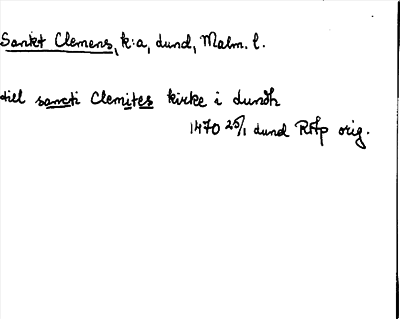 Sankt Clemens, k:a, Lund, Malm. l.
till sancti Clemites kirke i Lundh
1470 25/1 Lund RAp orig.